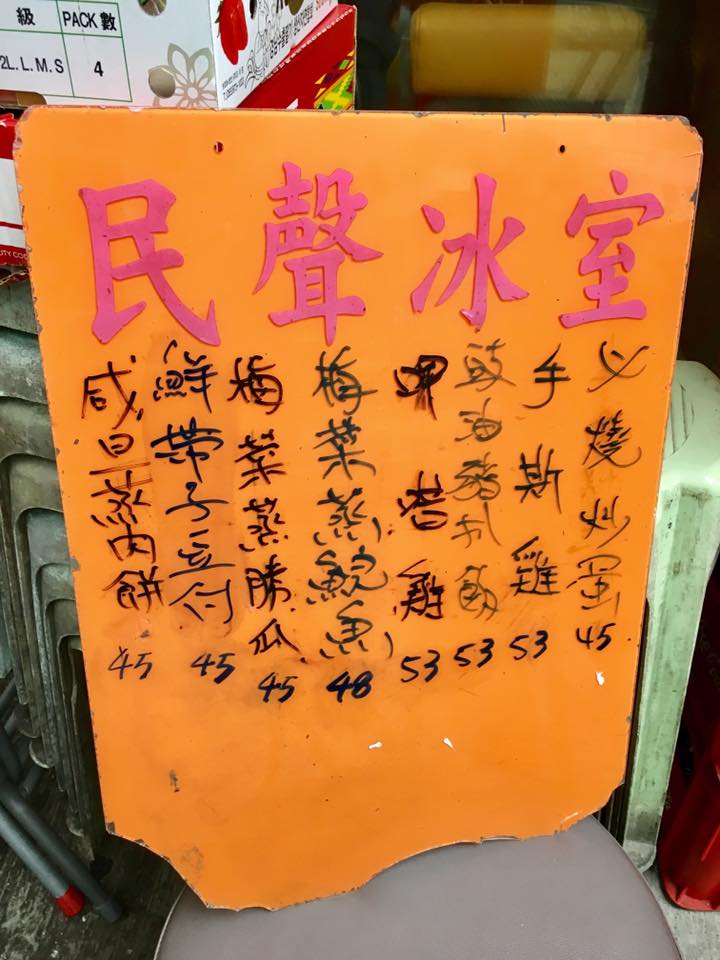 級 PACK數
2L.L.M.S 4
民聲冰室
乂燒炒蛋 45
手斯雞 53
豉油豬扒飯 53
雞 53
梅菜蒸鯇魚 48
梅菜蒸勝瓜 45
鮮帶子豆付 45
咸旦蒸肉餅 45